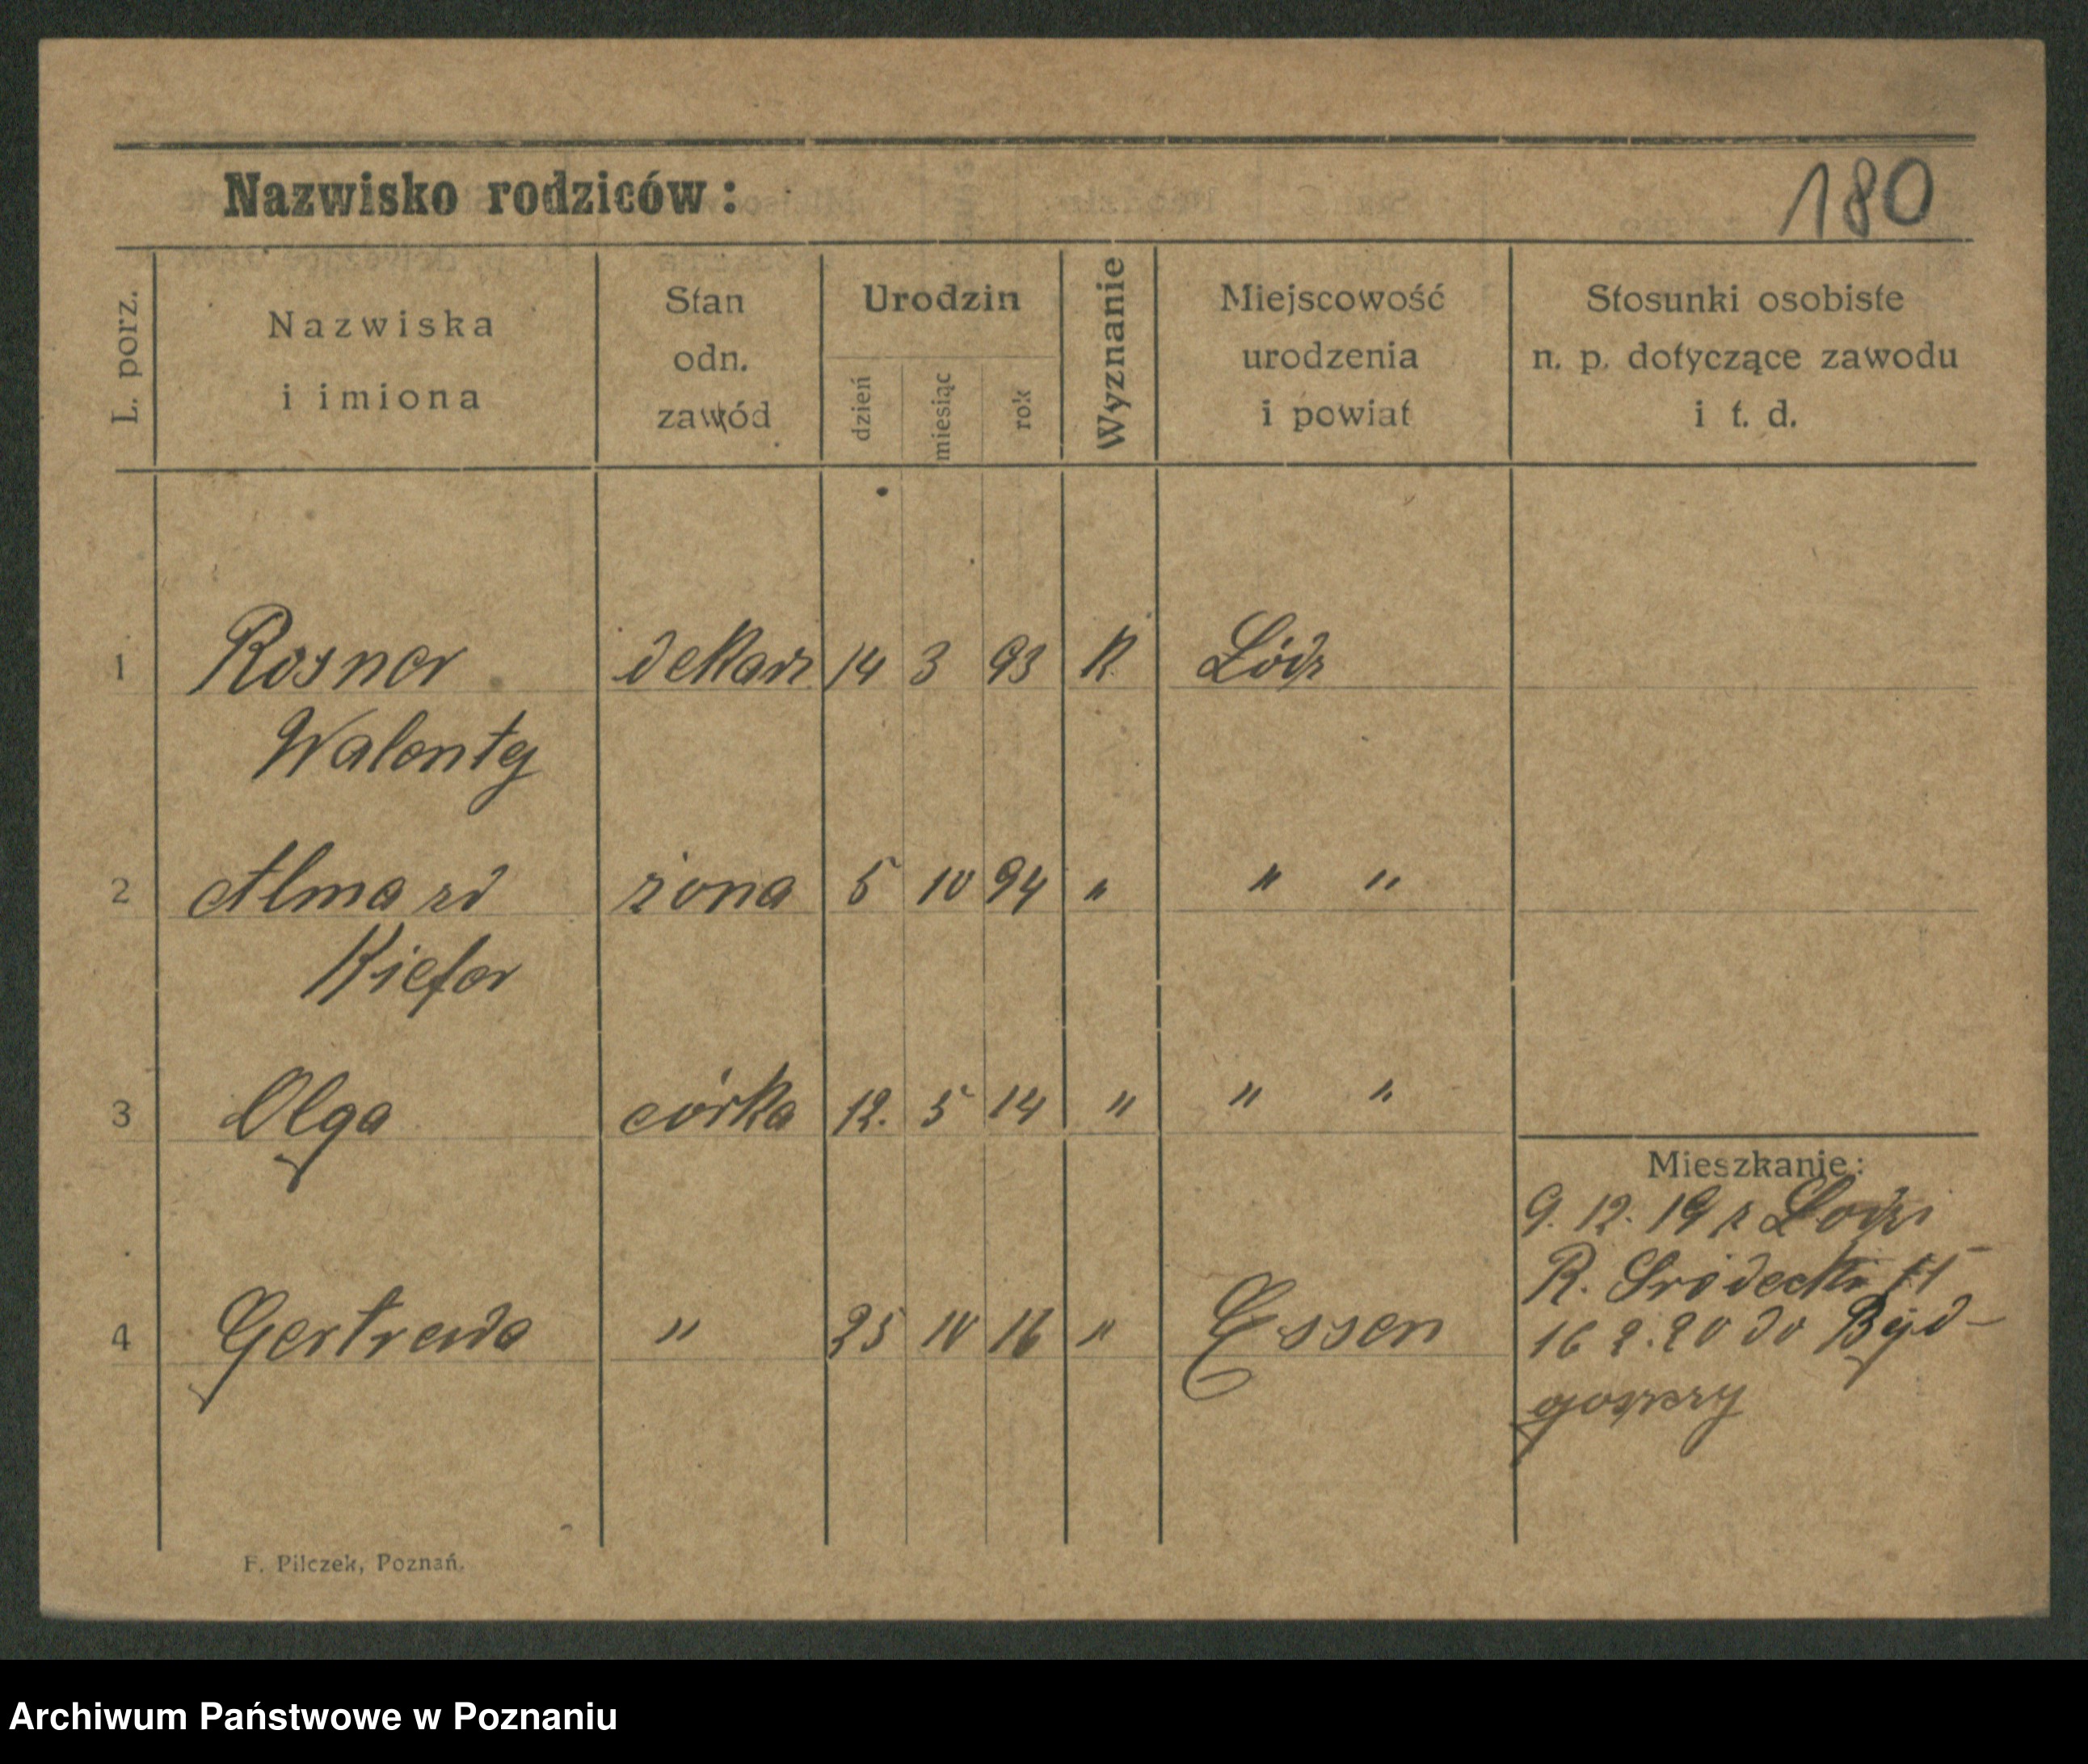 Nazwisko rodziców:
180
L. porz.
Nazwiska
i imiona
Stan
odn.
zawód
Urodzin
dzień
miesiąc
rok
Wyznanie
Miejscowość
urodzenia
i powiat
Stosunki osobiste
n. p. dotyczące zawodu
i t. d.
1 Rosner dekarz 14 3 93 K Łódz
Walenty
2 Alma zd żona 5 10 94 " " "
Kiefer
3 Olga córka 12. 5 14 " " "
4 Gertruda " 25 10 16 " Essen
Mieszkanie:
9. 12. 19 z Lodzi
R. Sródecki
16 2. 20 do Byd-
goszczy
F. Pilczek, Poznań.
Archiwum Państwowe w Poznaniu